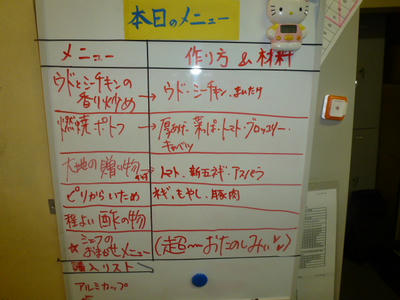 本日のメニュー
メニュー 作り方 & 材料
ウドとシーチキンの
香り炒め → ウド・シーチキン・まいたけ
燃焼ポトフ → 厚あげ・菜っぱ・トマト・ブロッコリー・
キャベツ
大地の贈り物 → トマト、新玉ネギ・アスパラ
ピリからいため ネギ、もやし、豚肉
程よい酢の物
★シェフの
おまかせメニュー (超〜おたのしみ♡)
購入リスト
アルミカップ